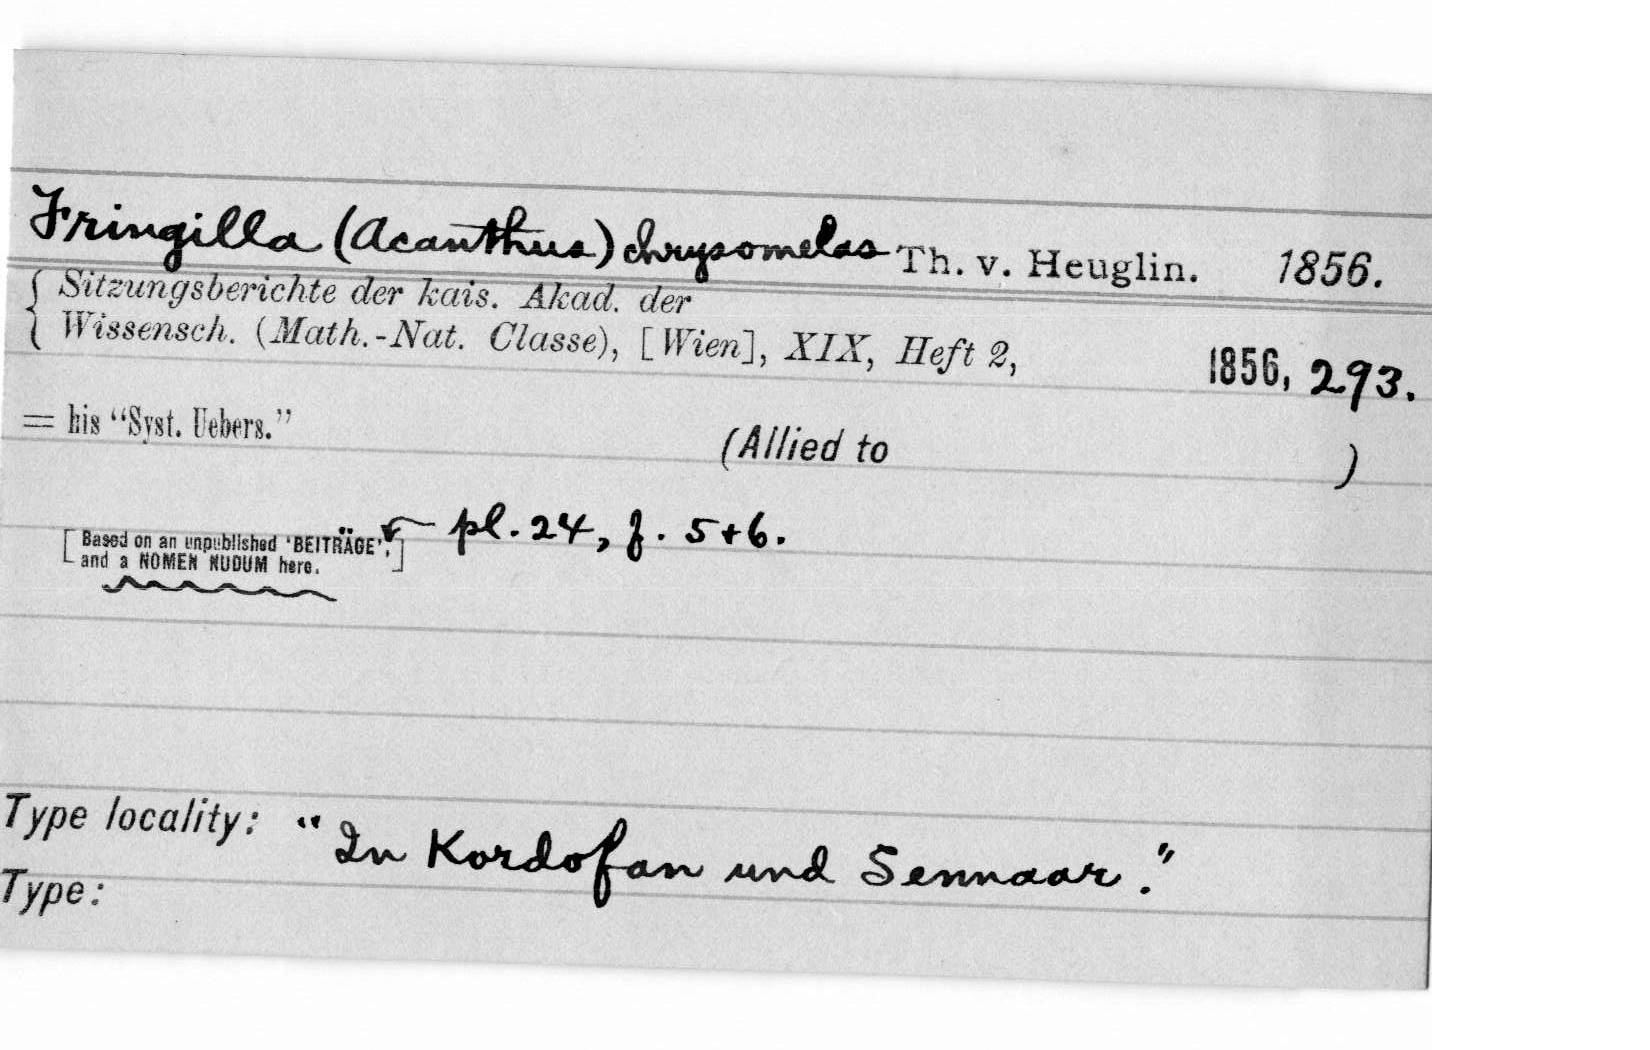 Fringilla (Acanthus) chrysomelas Th. v. Heuglin. 1856.
Sitzungsberichte der kais. Akad. der
Wissensch. (Math.-Nat. Classe), [Wien], XIX, Heft 2, 1856, 293.
= his “Syst. Uebers.”
(Allied to )
[Based on an unpublished ‘BEITRÄGE’, pl. 24, f. 5+6.
and a NOMEN NUDUM here.]
Type locality: “In Kordofan und Sennaar.”
Type: